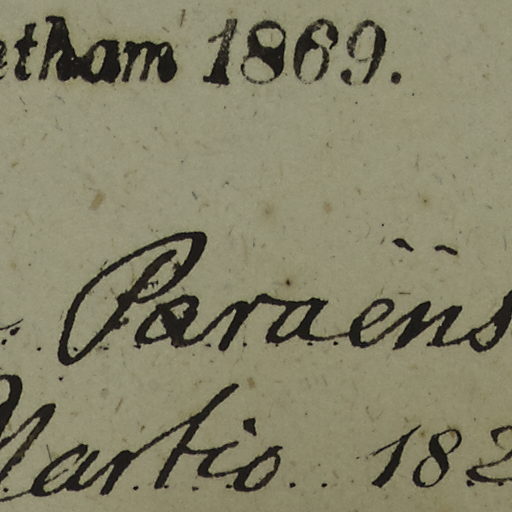 etham 1869.
Paraëns
Martio. 182